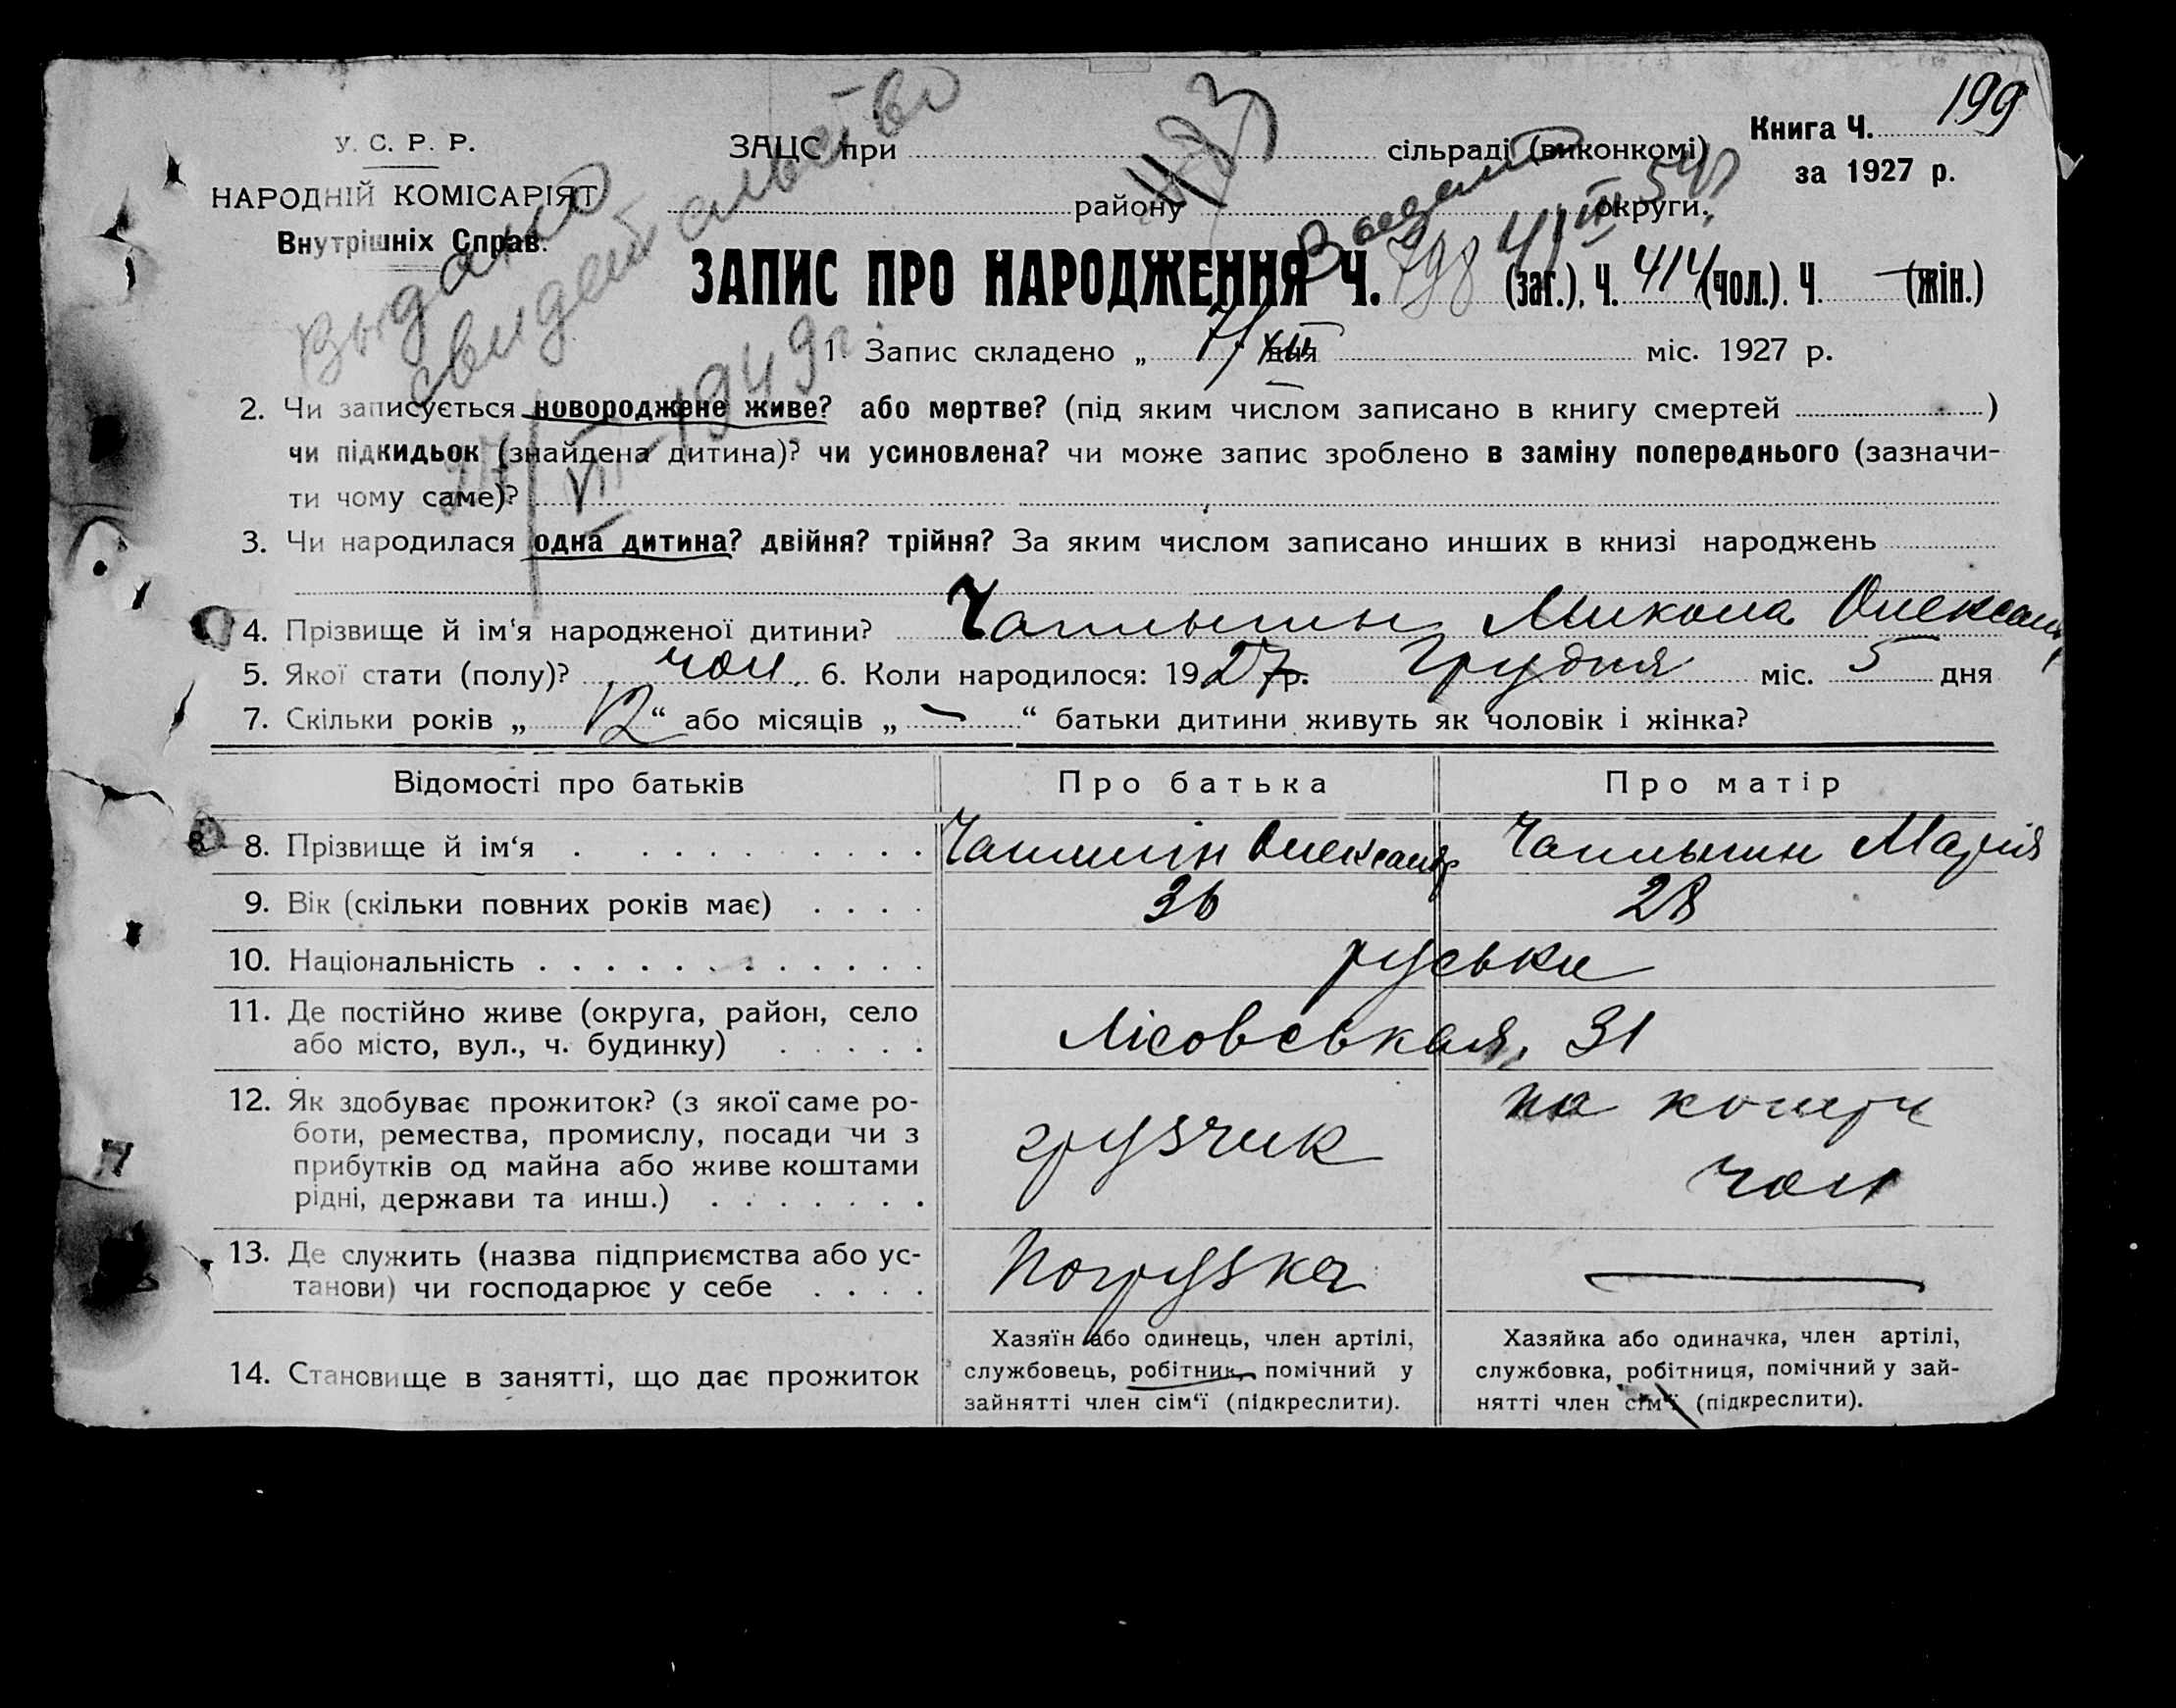 199
У. С. Р. Р.
НАРОДНІЙ КОМІСАРІЯТ
Внутрішніх Справ.
ЗАЦС при сільраді (виконкомі)
району округи.
Книга Ч.
за 1927 р.
Выдано
свидетельство
1949 г.
ЗАПИС ПРО НАРОДЖЕННЯ Ч. 798 (заг.), Ч. 414 (чол.). Ч. — (жін.)
1. Запис складено „ 7/XII дня міс. 1927 р.
2. Чи записується новороджене живе? або мертве? (під яким числом записано в книгу смертей )
чи підкидьок (знайдена дитина)? чи усиновлена? чи може запис зроблено в заміну попереднього (зазначи-
ти чому саме)?
3. Чи народилася одна дитина? двійня? трійня? За яким числом записано инших в книзі народжень
4. Прізвище й ім‘я народженої дитини? Чаплыгин Микола Олександ
5. Якої стати (полу)? чол. 6. Коли народилося: 1927 р. Грудня міс. 5 дня
7. Скільки років „ 12 “ або місяців „ — “ батьки дитини живуть як чоловік і жінка?
Відомості про батьків Про батька Про матір
8. Прізвище й ім‘я Чаплигін Олександр Чаплыгин Марія
9. Вік (скільки повних років має) 36 28
10. Національність руськи
11. Де постійно живе (округа, район, село
або місто, вул., ч. будинку) Лісовськая, 31
12. Як здобуває прожиток? (з якої саме ро-
боти, ремества, промислу, посади чи з
прибутків од майна або живе коштами
рідні, держави та инш.) грузчик на
чол
13. Де служить (назва підприємства або ус-
танови) чи господарює у себе Погрузка —
14. Становище в занятті, що дає прожиток
Хазяїн або одинець, член артілі,
службовець, робітник, помічний у
зайнятті член сім‘ї (підкреслити).
Хазяйка або одиначка, член артілі,
службовка, робітниця, помічний у зай-
нятті член сім‘ї (підкреслити).